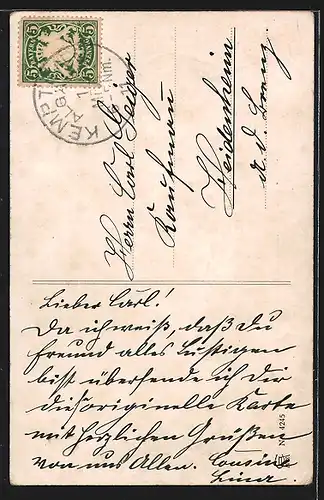 BAYERN
5
KEMPT
Nm.
Herrn Carl Geiger
Kaufmann
Heidenheim
a. d. Brenz.
Lieber Carl!
Da ich weiß, daß du
Freund alles Lustigen
bist übersende ich dir
die originelle Karte
mit herzlichen Grüßen
von uns Allen. Cousine
Lina.
4245